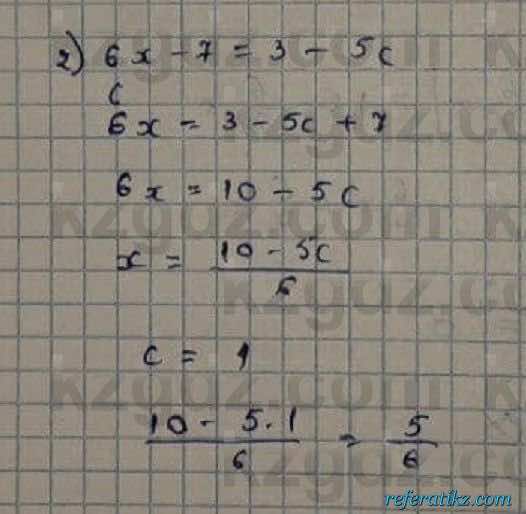 2) 6x - 7 = 3 - 5c
c
6x = 3 - 5c + 7
6x = 10 - 5c
x = (10 - 5c)/6
c = 1
(10 - 5 · 1)/6 = 5/6
referatikz.com